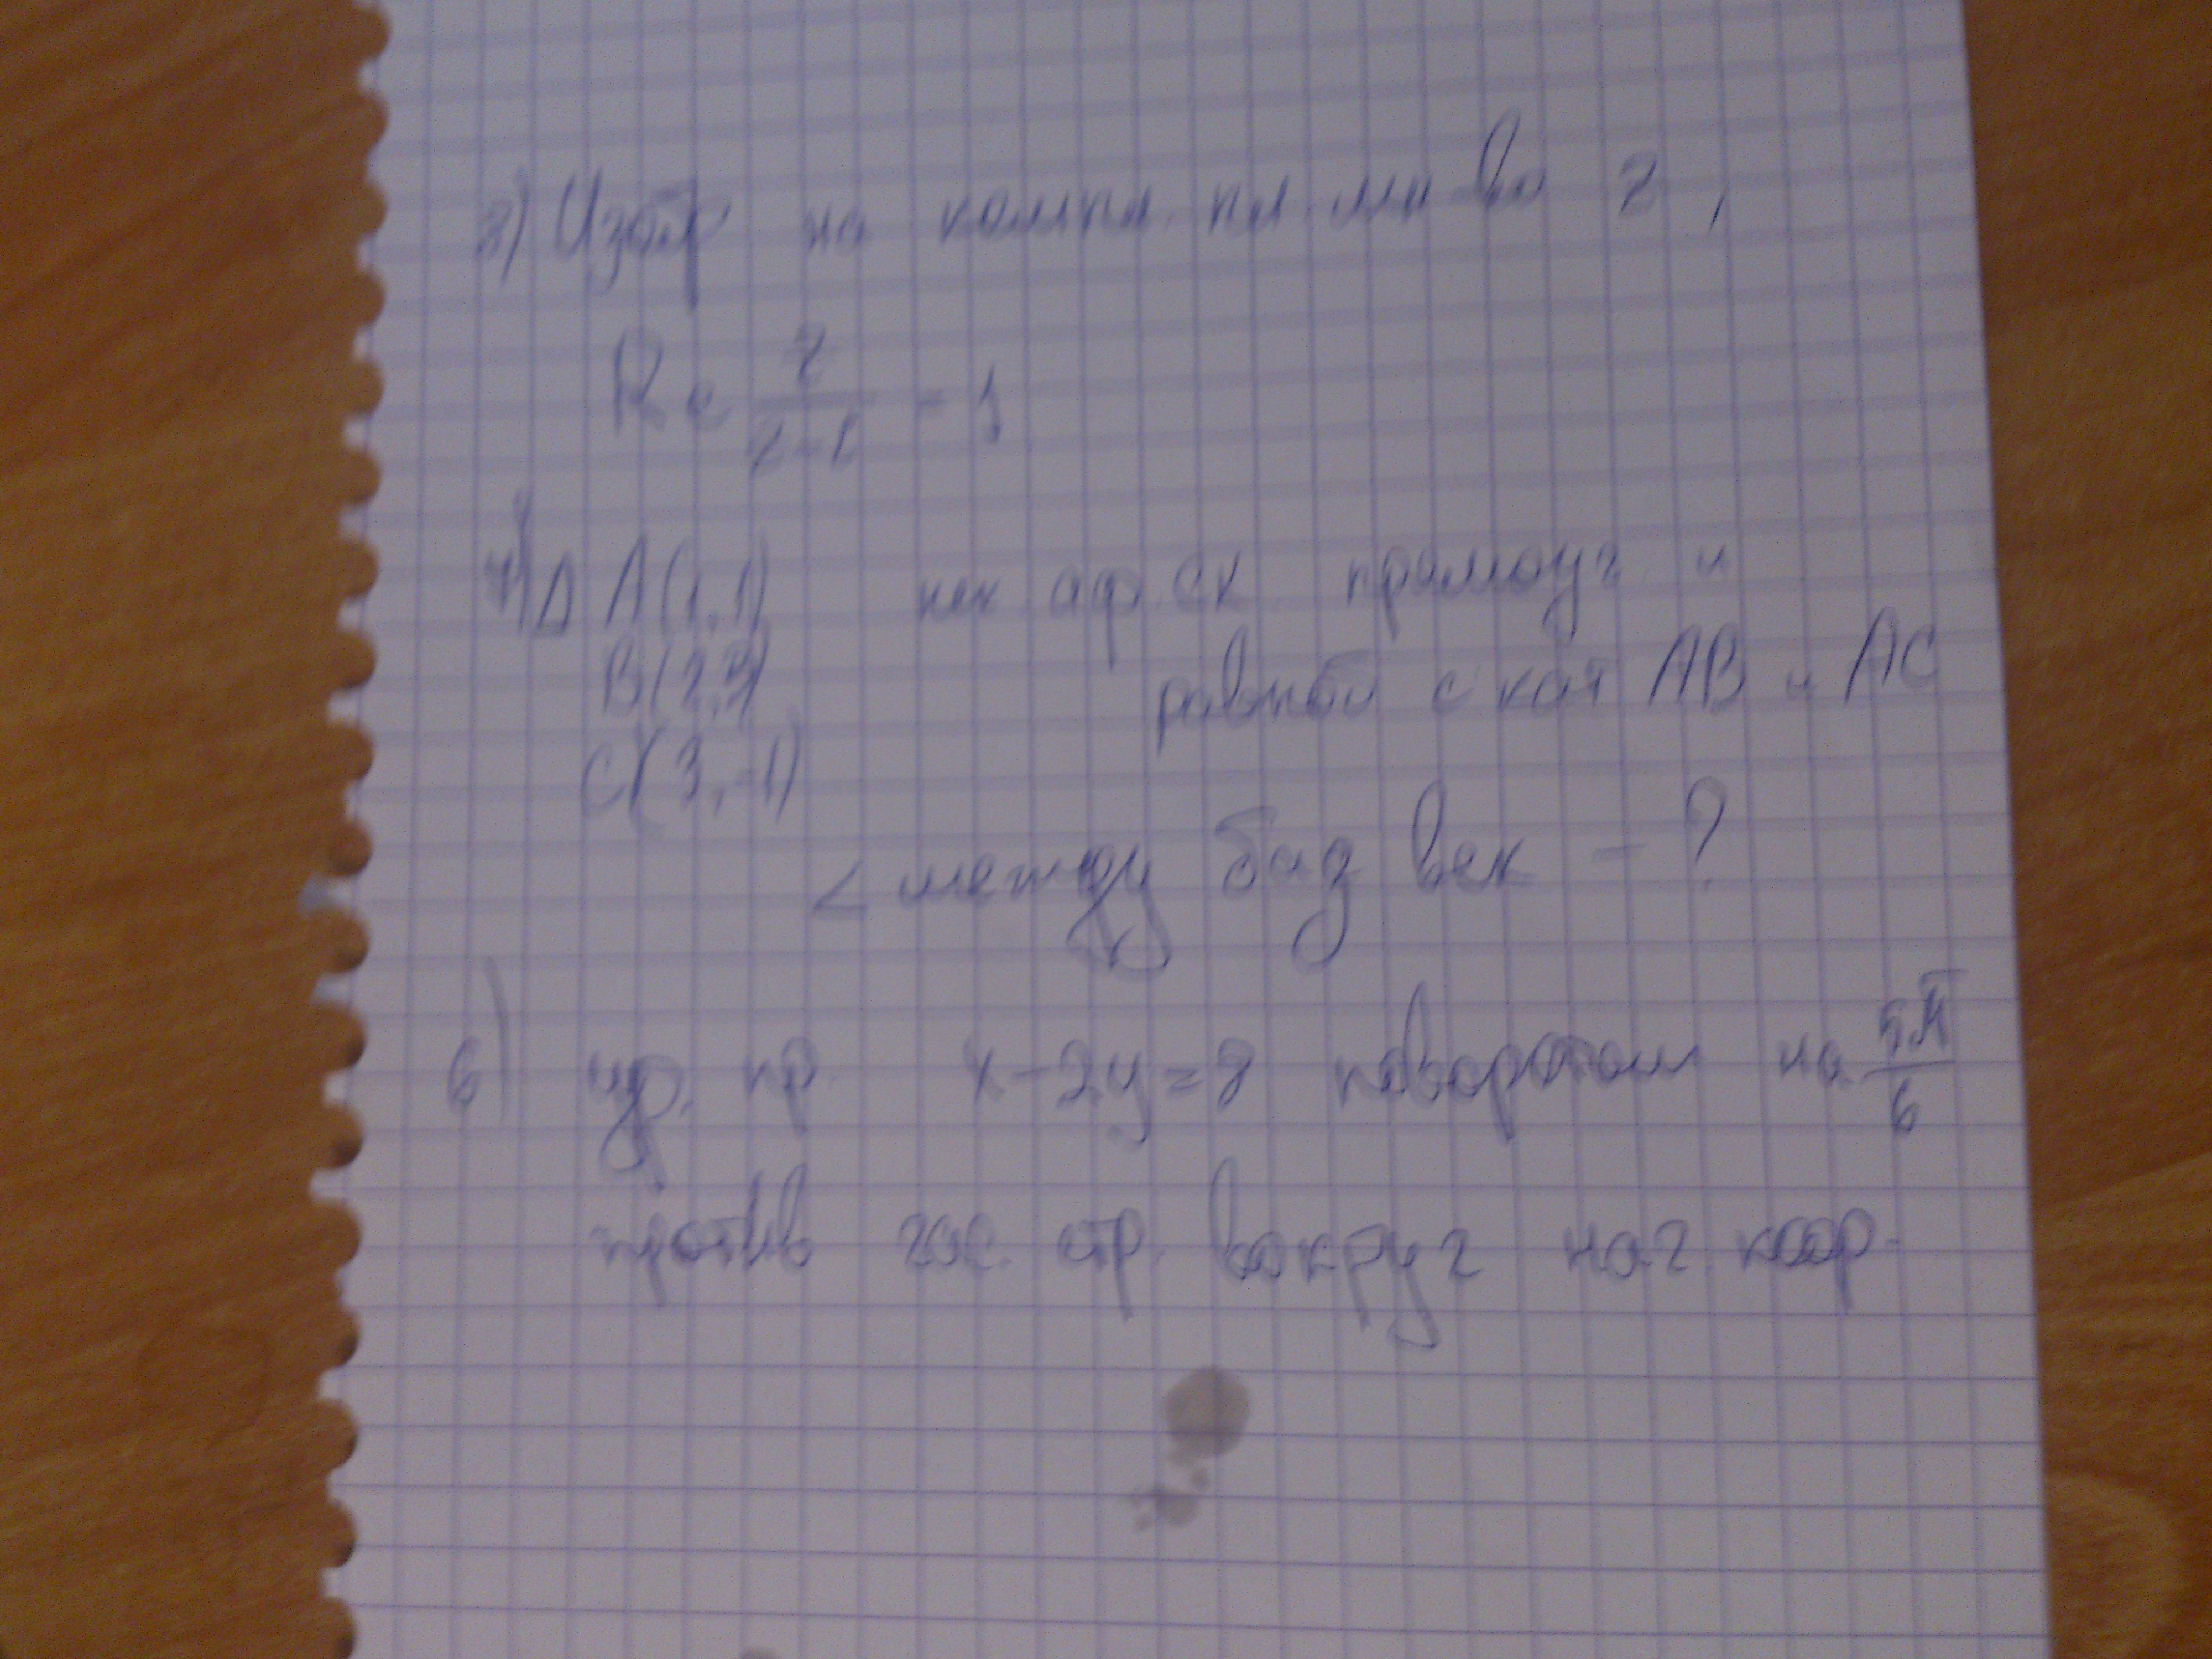 8) Изобр на компл. пл. мн-во z,
Re z/(z-i) = 1
Δ A(1,1) нек. аф. СК прямоуг. и
B(2,3) равноб с кат AB и AC
C(3,-1)
∠ между баз век - ?
6) ур. пр. x-2y=8 поворотом на 5π/6
против час. стр. вокруг нач коор.